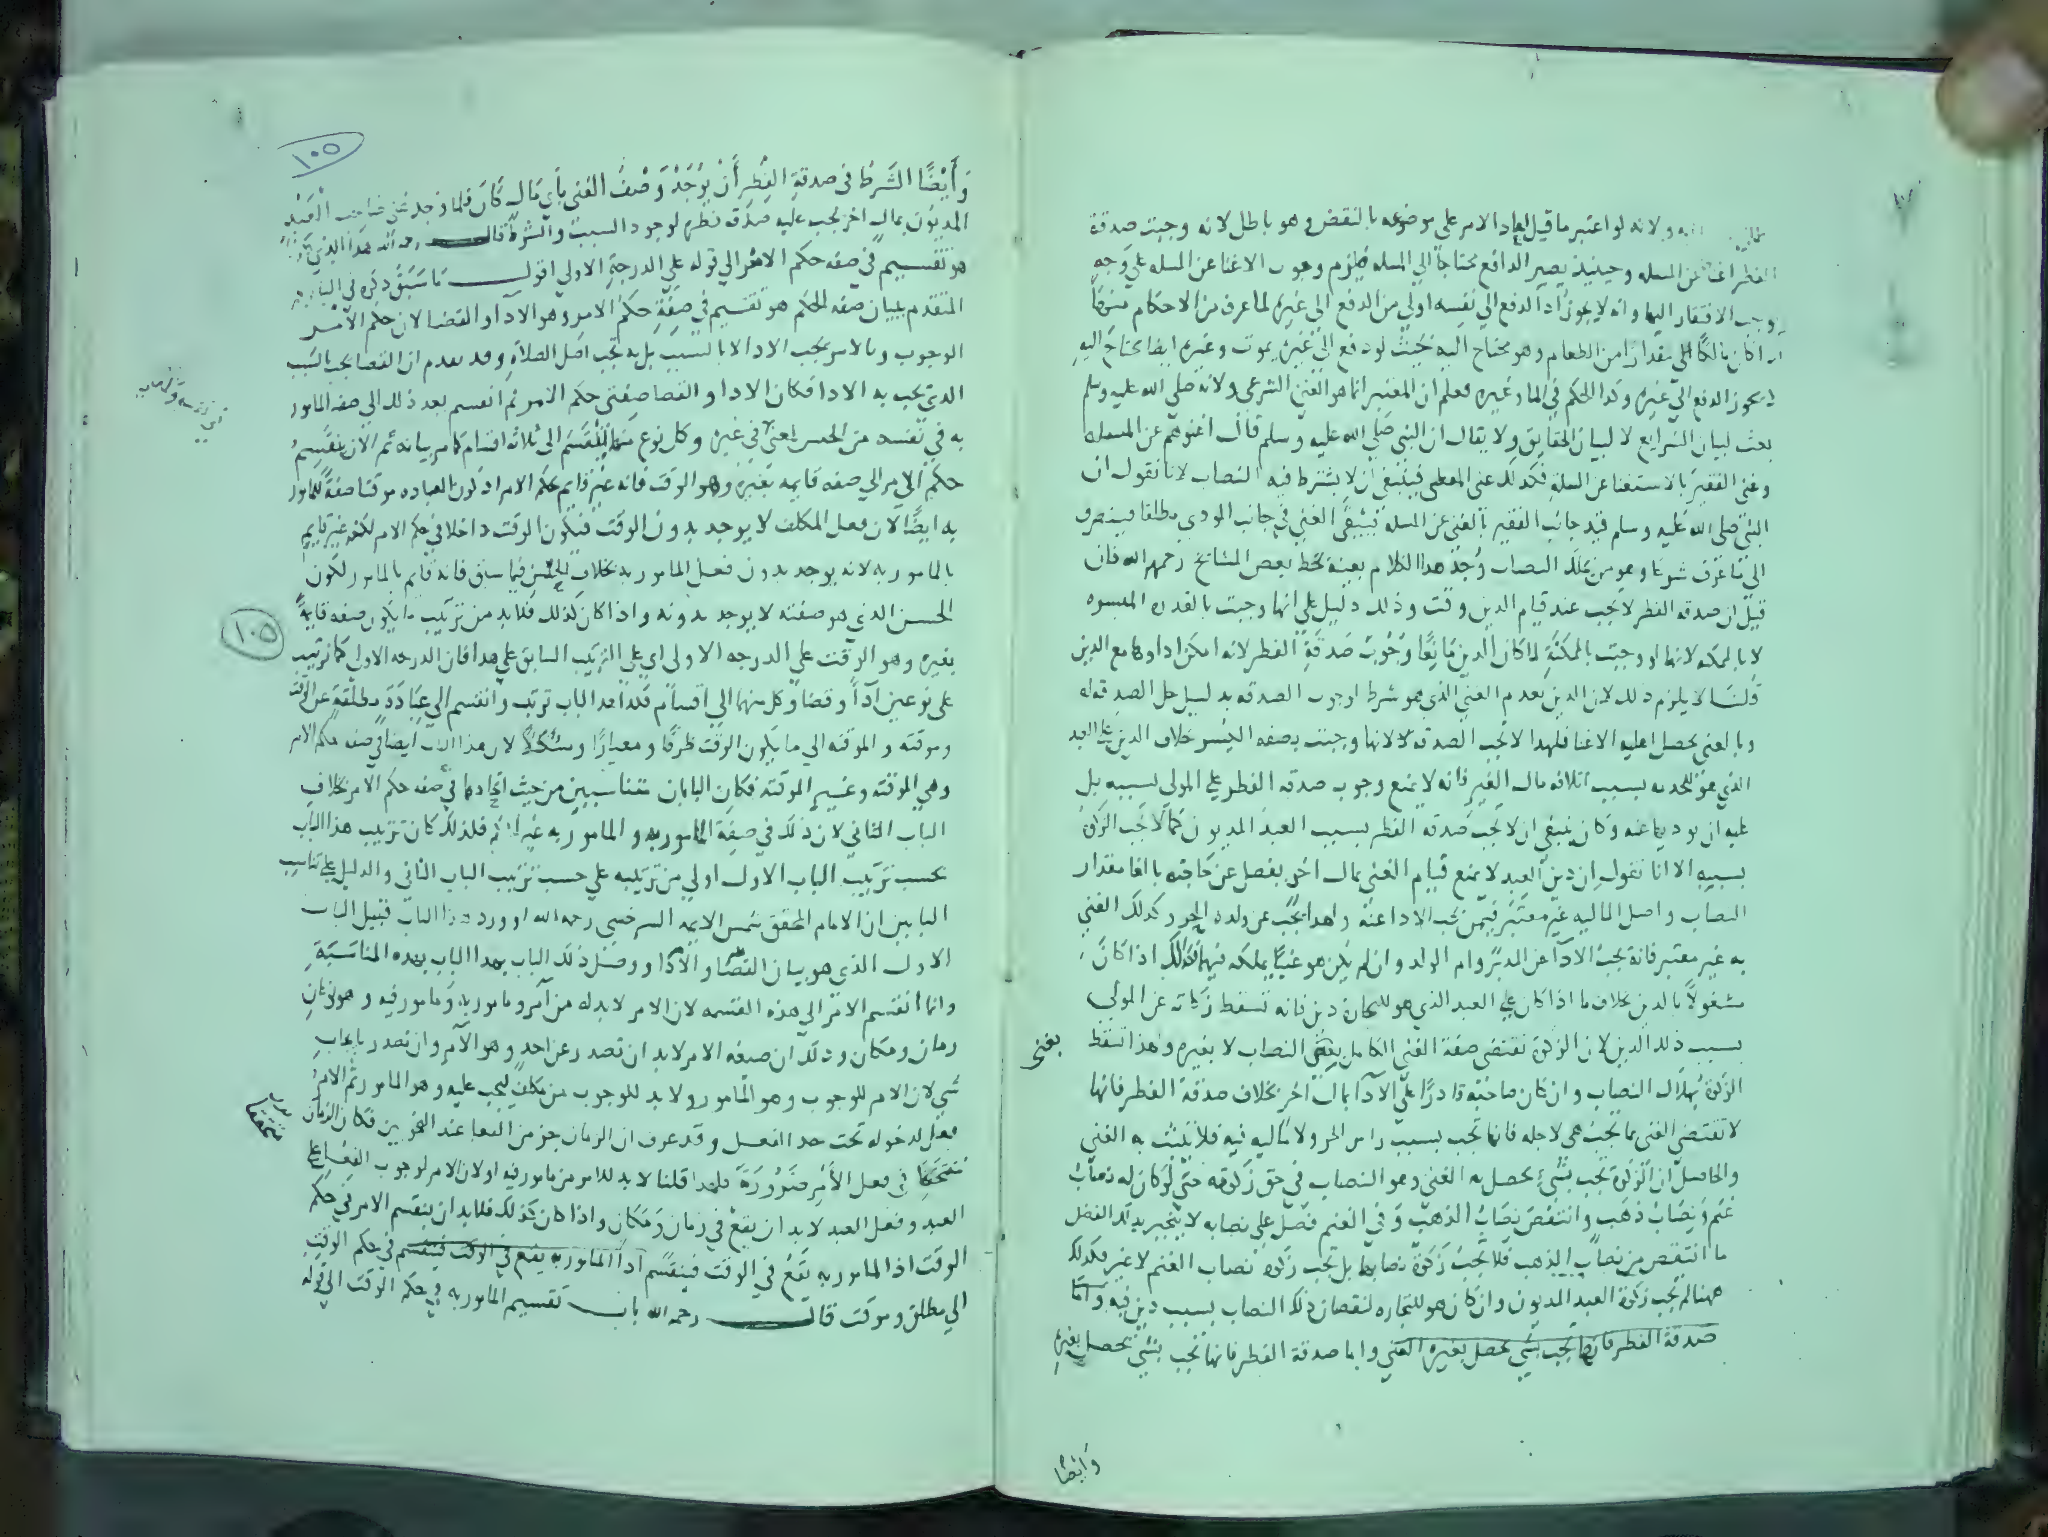 ولانه لو اعتبر ما قيل لعاد الامر على موضوعه بالنقض وهو باطل لانه وجبت صدقة
الفطر اغناء عن المسله وحينيذ يصير الدافع محتاجا الي المسله فيلزم وجوب الاغنا عن المسله علي وجه
يوجب الافتقار اليها وانه لا يجوز اذ الدفع الي نفسه اولي من الدفع الى غيره لما عرف من الاحكام
كان مالكا لمقدار من الطعام وهو محتاج اليه بحيث لو دفع الي غيره يموت وغيره ايضا يحتاج اليه
لا يجوز الدفع الي غيره وكذا الحكم في الماء وغيره فعلم ان المعتبر انما هو الغني الشرعي ولانه صلي الله عليه وسلم
بعث لبيان الشرايع لا لبيان الحقايق ولا يقال ان النبي صلي الله عليه وسلم قال اغنوهم عن المسله
وغني الفقير بالاستغنا عن المسله فكذلك غني المعطي فينبغي ان لا يشترط فيه النصاب لانا نقول ان
النبي صلى الله عليه وسلم قيد جانب الفقير بالغني عن المسله فيبقي الغني في جانب المودي مطلقا فينصرف
الي ما عرف شرعا وهو من يملك النصاب وجد هذا الكلام بعينه بخط بعض المشايخ رحمهم الله فان
قيل ان صدقه الفطر لا تجب عند قيام الدين وقت وذلك دليل علي انها وجبت بالقدره الميسره
لا بالممكنه لانها لو وجبت بالممكنة لما كان الدين مانعا وجوب صدقة الفطر لانه امكن اداوها مع الدين
قلنا لا يلزم ذلك لان الدين يعدم الغني الذي هو شرط لوجوب الصدقه بدليل حل الصدقه له
وبالغني يحصل اهليه الاغنا فلهذا لا تجب الصدقه لا لانها وجبت بصفه اليسر خلاف الدين علي العبد
الذي هو للخدمه بسبب اتلافه مال الغير فانه لا يمنع وجوب صدقه الفطر علي المولي بسببه بل
عليه ان يوديها عنه وكان ينبغي ان لا تجب صدقه الفطر بسبب العبد المديون كما لا تجب الزكوة
بسببه الا انا نقول ان دين العبد لا يمنع قيام الغني بمال اخر يفضل عن حاجته بالغا مقدار
النصاب واصل الماليه غير معتبر فيمن يجب الادا عنه ولهذا يجب عن ولده الحر وكذلك الغني
به غير معتبر فانه يجب الادا عن المدبر وام الولد وان لم يكن هو غنيا بملكه فيهما فكذلك اذا كان
مشغولا بالدين بخلاف ما اذا كان علي العبد الذي هو للتجارة دين فانه تسقط زكاته عن المولي
بسبب ذلك الدين لان الزكوة تقتضي صفة الغني الكامل بعين النصاب لا بغيره ولهذا تسقط
الزكوة بهلاك النصاب وان كان صاحبه قادرا علي الادا بمال اخر بخلاف صدقة الفطر فانها
لا تقتضي الغني بما يجب هي لاجله فانها تجب بسبب راس الحر ولا مالية فيه فلا يثبت به الغني
والحاصل ان الزكوة تجب بشي يحصل به الغني وهو النصاب في حق زكوته حتي لو كان له نصاب
غنم ونصاب ذهب وانتقص نصاب الذهب وفي الغنم فضل علي نصابه لا ينجبر بذلك الفضل
ما انتقص من نصاب الذهب فلا تجب زكوة نصابها بل تجب زكوة نصاب الغنم لا غير فكذلك
ههنا لم تجب زكوة العبد المديون وان كان هو للتجاره لنقصان ذلك النصاب بسبب دين فيه واما
صدقة الفطر فانها تجب بشي يحصل بغيره الغني واما صدقة الفطر فانها تجب بشي يحصل بغيره
وايضا
١٠٥
وأيضا الشرط في صدقة الفطر أن يوجد وصف الغني بأي مال كان فلما وجد غني صاحب العبد
المديون بمال اخر تجب عليه صدقة فطره لوجود السبب والشرط قال رحمه الله هذا الذي
هو تقسيم في صفه حكم الامر الي قوله علي الدرجة الاولي اقول ما سبق ذكره في الباب
المتقدم لبيان صفه الحكم هو تقسيم في صفة حكم الامر وهو الادا والقضا لان حكم الامر
الوجوب وبالامر يجب الادا لا بالسبب بل به يجب اصل الصلاة وقد تقدم ان القضا يجب بالسبب
الذي يجب به الادا فكان الادا والقضا صفتي حكم الامر ثم انقسم بعد ذلك الي صفه المامور
به في نفسه من الحسن لمعني في غيره وكل نوع منهما انقسم الى ثلاثه اقسام كما مر بيانه ثم الان ينقسم
حكم الامر الي صفه قايمه بغيره وهو الوقت فانه غير قايم بحكم الامر اذ كون العباده موقتا صفة للمامور
به ايضا لان فعل المكلف لا يوجد بدون الوقت فيكون الوقت داخلا في حكم الامر لكنه غير قايم
بالمامور به لانه يوجد بدون فعل المامور به بخلاف الحسن فيما سبق فانه قايم بالمامور لكون
الحسن الذي هو صفته لا يوجد بدونه واذا كان كذلك فلا بد من ترتيب ما يكون صفه قايمة
١٠٥
بغيره وهو الوقت علي الدرجه الاولي اي علي الترتيب السابق علي هذا فان الدرجه الاولي كما ترتبت
على نوعين اداء وقضا وكل منهما الي اقسام فكذا هذا الباب ترتب وانقسم الي عبادة مطلقة عن الوقت
وموقته والموقته الي ما يكون الوقت ظرفا ومعيارا ومشكلا لان هذا الباب ايضا في صفه حكم الامر
وهي الموقته وغير الموقته فكان البابان متناسبين من حيث اتحادهما في صفه حكم الامر بخلاف
الباب الثاني لان ذلك في صفة المامور به والمامور به غير الحكم فلذلك كان ترتيب هذا الباب
بحسب ترتيب الباب الاول اولي من ترتيبه علي حسب ترتيب الباب الثاني والدليل علي تناسب
البابين ان الامام المحقق شمس الايمه السرخسي رحمه الله اورد هذا الباب قبيل الباب
الاول الذي هو بيان القضا والادا ووصل ذلك الباب بهذا الباب بهذه المناسبة
وانما انقسم الامر الي هذه القسمه لان الامر لا بد له من آمر ومامور به ومامور فيه وهو نوعان
زمان ومكان وذلك ان صيغه الامر لا بد ان تصدر عن احد وهو الآمر وان تصدر بايجاب
شي لان الامر للوجوب وهو المامور ولا بد للوجوب من مكلف ليجب عليه وهو المامور ثم الامر
فعل لدخوله تحت حد الفعل وقد عرف ان الزمان جز من الفعل عند النحويين فكان الزمان
متحققا في فعل الأمر ضرورة فلهذا قلنا لا بد للامر من مامور فيه اولان الامر لوجوب الفعل علي
العبد وفعل العبد لا بد ان يقع في زمان ومكان واذا كان كذلك فلا بد ان ينقسم الامر في حكم
الوقت اذا المامور به يقع في الوقت فينقسم اذا المامور به يقع في الوقت فينقسم في حكم الوقت
الي مطلق وموقت قال رحمه الله باب تقسيم المامور به في حكم الوقت الي قوله